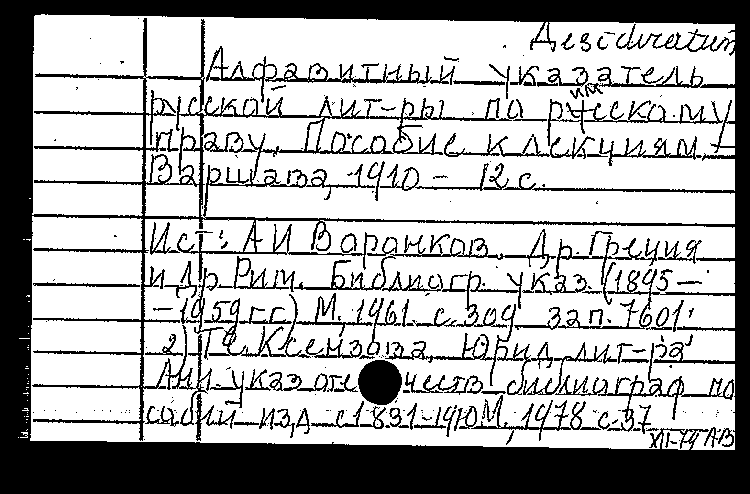 Desideratum
Алфавитный указатель
русской лит-ры по русскому
праву. Пособие к лекциям. -
Варшава, 1910 - 12 с.
Ист: А И Воронков. Др. Греция
и Др Рим. Библиогр. указ. (1895 -
- 1959 гг) М. 1961. с. 309 зап. 7601.
2) Ксензова. Юрид. лит-ра
Анн. указ отечеств библиограф по
собий изд с 1831-1910 М., 1978 с. 37
XII-79 АВ